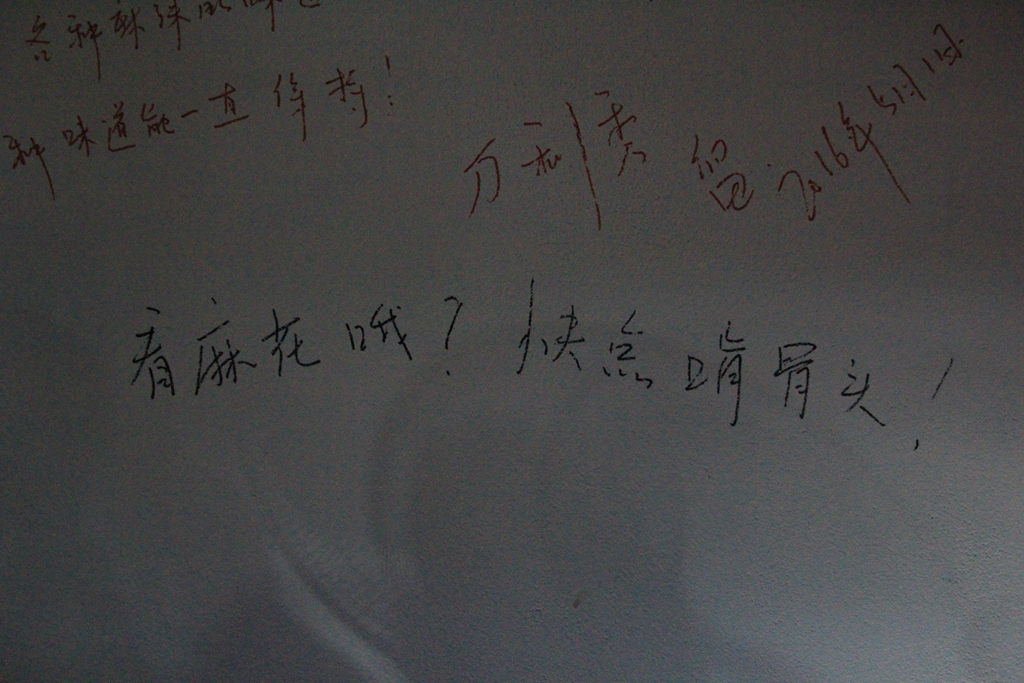 各种
种味道能一直保持！
万利秀 留. 2016年5月11日.
看麻花哦？快点啃骨头！